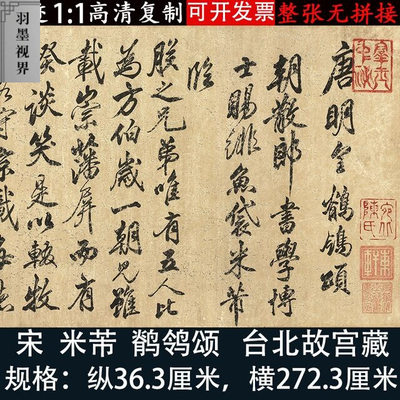 羽墨视界
1:1高清复制
可开发票
整张无拼接
唐明皇鶺鴒頌
朝散郎書學博
士賜緋魚袋米芾
臨
朕之兄弟唯有五人比
為方伯歲一朝見雖
載崇藩屏而有
談笑是以輟牧
宋 米芾 鹡鸰颂 台北故宫藏
规格：纵36.3厘米，横272.3厘米